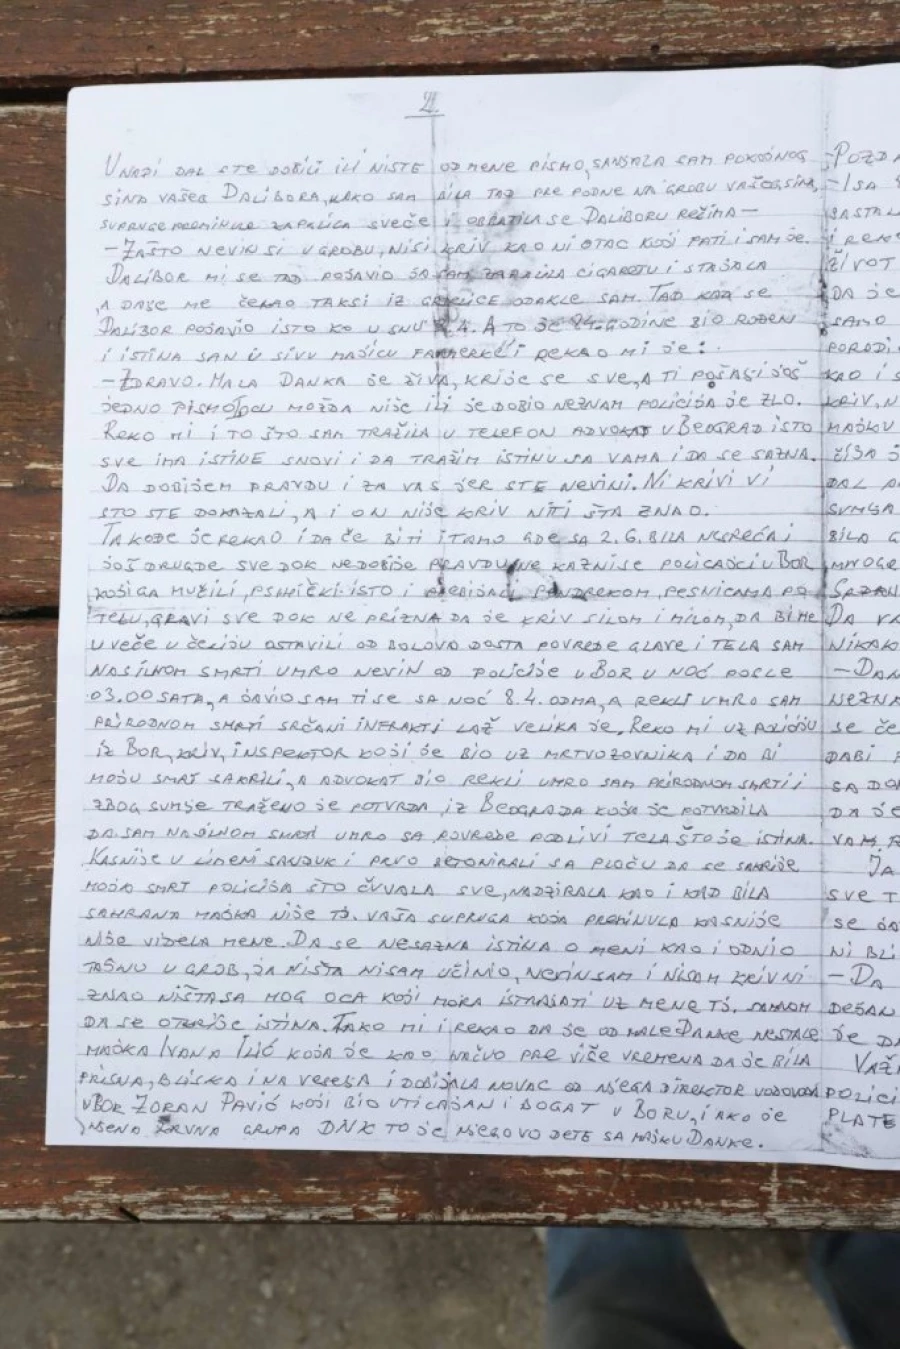 2.
U NADI DAL STE DOBILI ILI NISTE OD MENE PISMO, SANJALA SAM POKOJNOG
SINA VAŠEG DALIBORA, KAKO SAM BILA TAD PRE PODNE NA GROBU VAŠEG SINA,
SUPRUGE PREMINULE ZAPALILA SVEČE I OBRATILA SE DALIBORU REŽIMA—
—ZAŠTO NEVIN SI U GROBU, NISI KRIV KAO NI OTAC KOJI PATI I SAM JE.
DALIBOR MI SE TAD POJAVIO JA SAM ZAPALILA CIGARETU I STAJALA
A DA SE ME ČEKAO TAKSI IZ ODAKLE SAM. TAD KAD SE
DALIBOR POJAVIO ISTO KO U SNU 8.4. A TO JE 94. GODINE BIO ROĐEN
I ISTINA SAN U SIVU MAJICU FARMERKE I REKAO MI JE:
—ZDRAVO. MALA DANKA JE ŽIVA, KRIJE SE SVE, A TI POŠALJI JOŠ
JEDNO PISMO OCU MOŽDA NIJE ILI JE DOBIO NEZNAM POLICIJA JE ZLO.
REKO MI I TO ŠTO SAM TRAŽILA U TELEFON ADVOKAT U BEOGRAD ISTO
SVE IMA ISTINE SNOVI I DA TRAŽIM ISTINU SA VAMA I DA SE SAZNA.
DA DOBIJEM PRAVDU I ZA VAS JER STE NEVINI. NI KRIVI VI
STO STE DOKAZALI, A I ON NIJE KRIV NITI ŠTA ZNAO.
TAKOĐE JE REKAO I DA ČE BITI I TAMO GDE SA 2.6. BILA NESREĆA I
JOŠ DRUGDE SVE DOK NEDOBIJE PRAVDU NE KAZNI SE POLICAJCI U BOR
KOJI GA MUŽILI, PSIHIČKI ISTO I PREBIJALI PENDREKOM, PESNICAMA PO
TELU, GLAVI SVE DOK NE PRIZNA DA JE KRIV SILOM I MILOM, DA BI ME
U VEČE U ČELIJU OSTAVILI OD BOLOVA DOSTA POVREDE GLAVE I TELA SAM
NASILNOM SMRTI UMRO NEVIN OD POLICIJE U BOR U NOĆ POSLE
03.00 SATA, A JAVIO SAM TI SE SA NOĆ 8.4. ODMA, A REKLI UMRO SAM
PRIRODNOM SMRTI SRČANI INFRAKTI LAŽ VELIKA JE. REKO MI UZ POLICIJU
IZ BOR, KRIV, INSPEKTOR KOJI JE BIO UZ MRTVOZOVNIKA I DA BI
MOJU SMRT SAKRILI, A ADVOKAT BIO REKLI UMRO SAM PRIRODNOM SMRTI I
ZBOG SUMJE TRAŽENO JE POTVRDA IZ BEOGRADA KOJA JE POTVRDILA
DA SAM NASILNOM SMRTI UMRO SA POVREDE PODLIVI TELA ŠTO JE ISTINA.
KASNIJE U LIMENI SANDUK I PRVO BETONIRALI SA PLOČU DA SE SAKRIJE
MOJA SMRT POLICIJA ŠTO ČUVALA SVE, NADZIRALA KAO I KAD BILA
SAHRANA MAJKA NIJE TJ. VAŠA SUPRUGA KOJA PREMINULA KASNIJE
NIJE VIDELA MENE. DA SE NESAZNA ISTINA O MENI KAO I ODNIO
TAJNU U GROB, JA NIŠTA NISAM UČINIO, NEVIN SAM I NISAM KRIV NI
ZNAO NIŠTA SA MOG OCA KOJI MORA ISTRAJATI UZ MENE TJ. SAMNOM
DA SE OTKRIJE ISTINA. TAKO MI I REKAO DA JE OD MALE DANKE NESTALE
MAJKA IVANA ILIĆ KOJA JE KAO NAČUO PRE VIŠE VREMENA DA JE BILA
PRISNA, BLISKA I NA VESELJA I DOBIJALA NOVAC OD NJEGA DIREKTOR VODOVODA
U BOR ZORAN PAVIĆ KOJI BIO UTICAJAN I BOGAT U BORU, I AKO JE
NJENA KRVNA GRUPA DNK TO JE NJEGOVO DETE SA MAJKU DANKE.
—POZDR
—I SA
SASTAL
I REK
ŽIVOT
DA JE
SAMO
PORODI
KAO I S
KRIV, N
MAJKU
DAL
SUMJA
BILA
MNOGE
DA
NIKAK
—DAN
NEZNA
SE ČE
DABI
SA DO
DA JE
VAM
JA
SVE T
SE
NI BLI
—DA
DEŠAN
JE DA
VAŽI
POLICI
PLATE